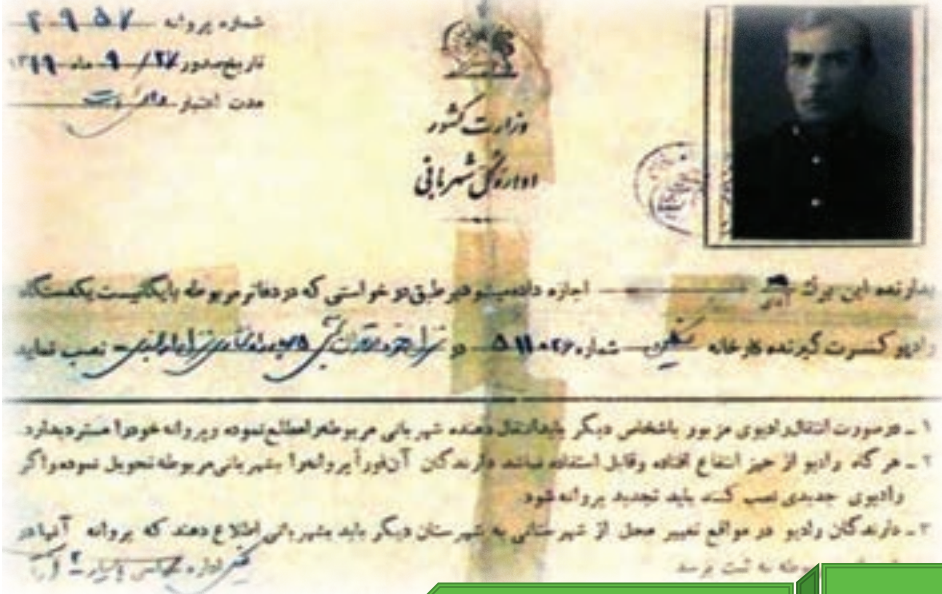 شماره پروانه ۲۹۵۷
تاریخ صدور ۲۷/ ۹ ماه ۱۳۱۹
مدت اعتبار
وزارت کشور
اداره کل شهربانی
بدارنده این برگ آقای اجازه داده میشود بر طبق درخواستی که در دفاتر مربوطه بایگانیست یکدستگاه
رادیو کنسرت گیرنده کارخانه شماره ۵۱۱۰۲۶ در نصب نماید
۱ ـ درصورت انتقال رادیوی مزبور باشخاص دیگر باید انتقال دهنده شهربانی مربوطه را مطلع نموده و پروانه خود را مسترد بدارد.
۲ ـ هر گاه رادیو از حیز انتفاع افتاده وقابل استفاده نباشد دارندگان آن فوراً پروانه را بشهربانی مربوطه تحویل نموده واگر
رادیوی جدیدی نصب کنند باید تجدید پروانه شود.
۳ ـ دارندگان رادیو در مواقع تغییر محل از شهرستانی به شهرستان دیگر باید بشهربانی اطلاع دهند که پروانه آنها در
مربوطه به ثبت برسد
اداره سیاسی